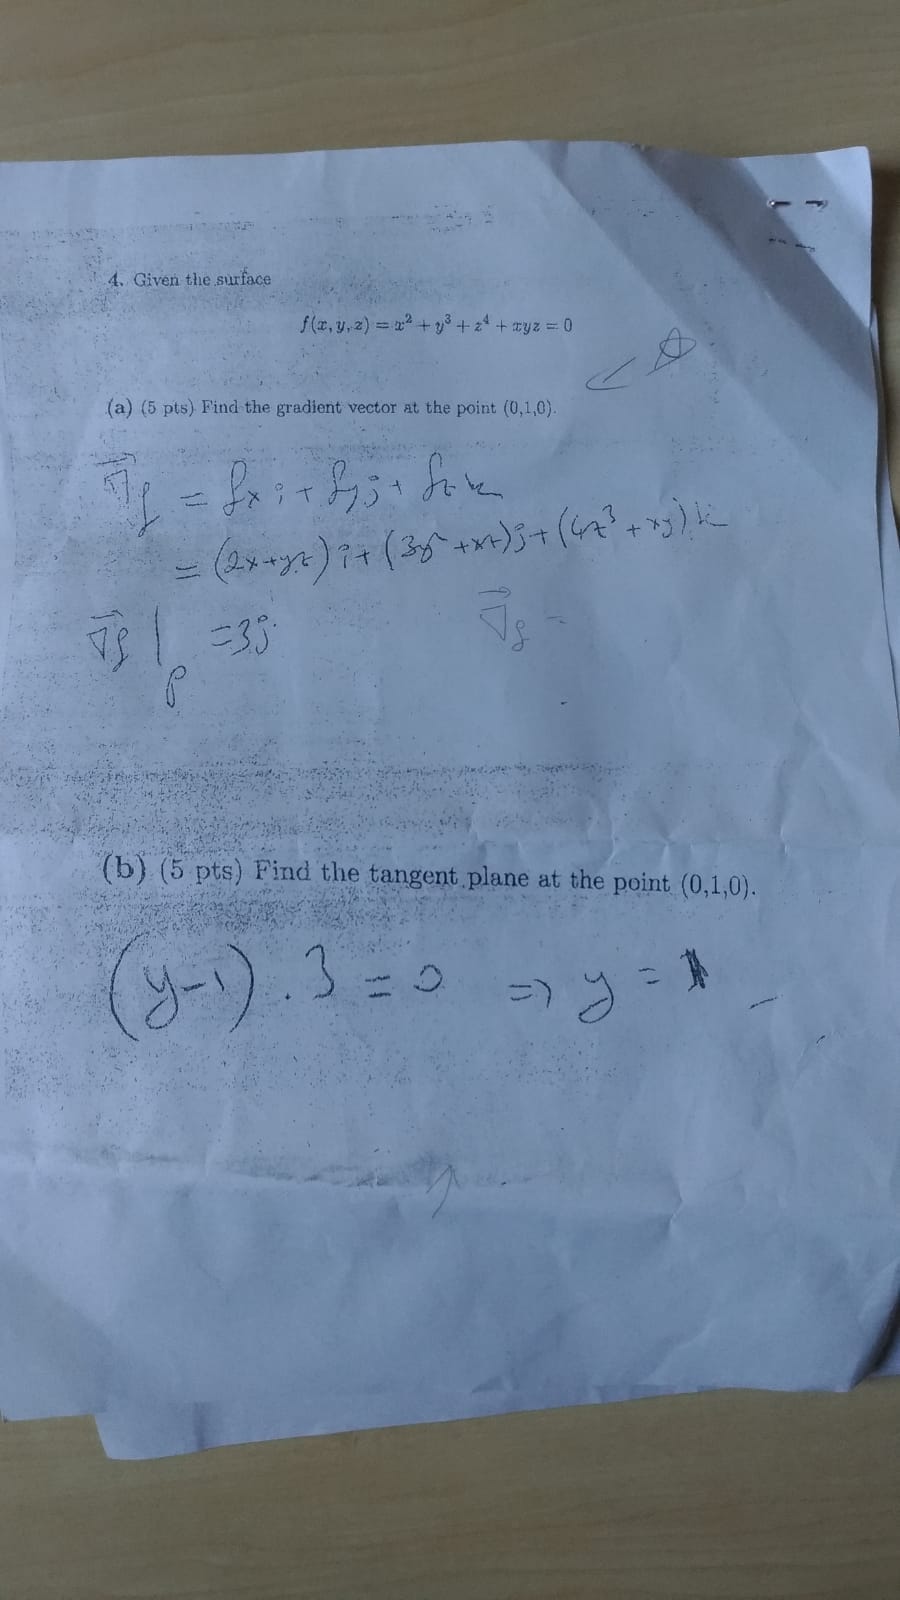 4. Given the surface
f(x, y, z) = x² + y³ + z⁴ + xyz = 0
(a) (5 pts) Find the gradient vector at the point (0,1,0).
∇⃗f = fx i + fy j + fz k
= (2x+yz) i + (3y² + xz) j + (4z³ + xy) k
∇⃗f |p = 3j
∇⃗f =
(b) (5 pts) Find the tangent plane at the point (0,1,0).
(y-1) . 3 = 0 => y = 1